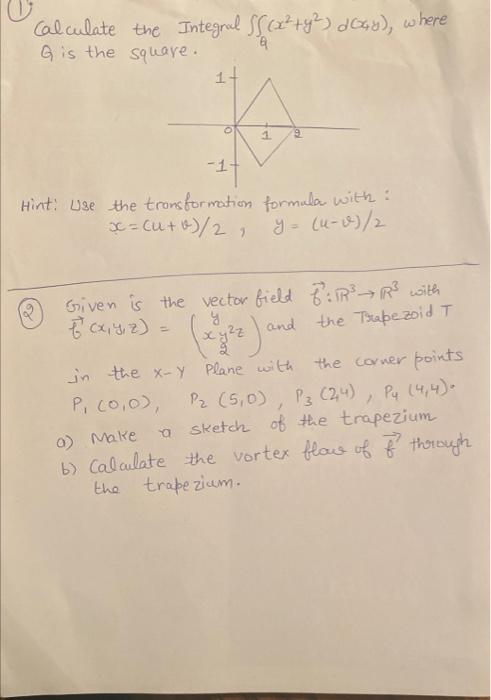 ①
Calculate the Integral ∬(x²+y²) d(x,y), where
Q
Q is the square.
1
0 1 2
-1
Hint: Use the transformation formula with :
x = (u+v)/2 , y = (u-v)/2
② Given is the vector field f⃗ : ℝ³ → ℝ³ with
f⃗ (x,y,z) = (y xy²z 2) and the Trapezoid T
in the x-y Plane with the corner points
P₁ (0,0), P₂ (5,0) , P₃ (2,4) , P₄ (4,4).
a) Make a sketch of the trapezium
b) Calculate the vortex flow of f⃗ through
the trapezium.